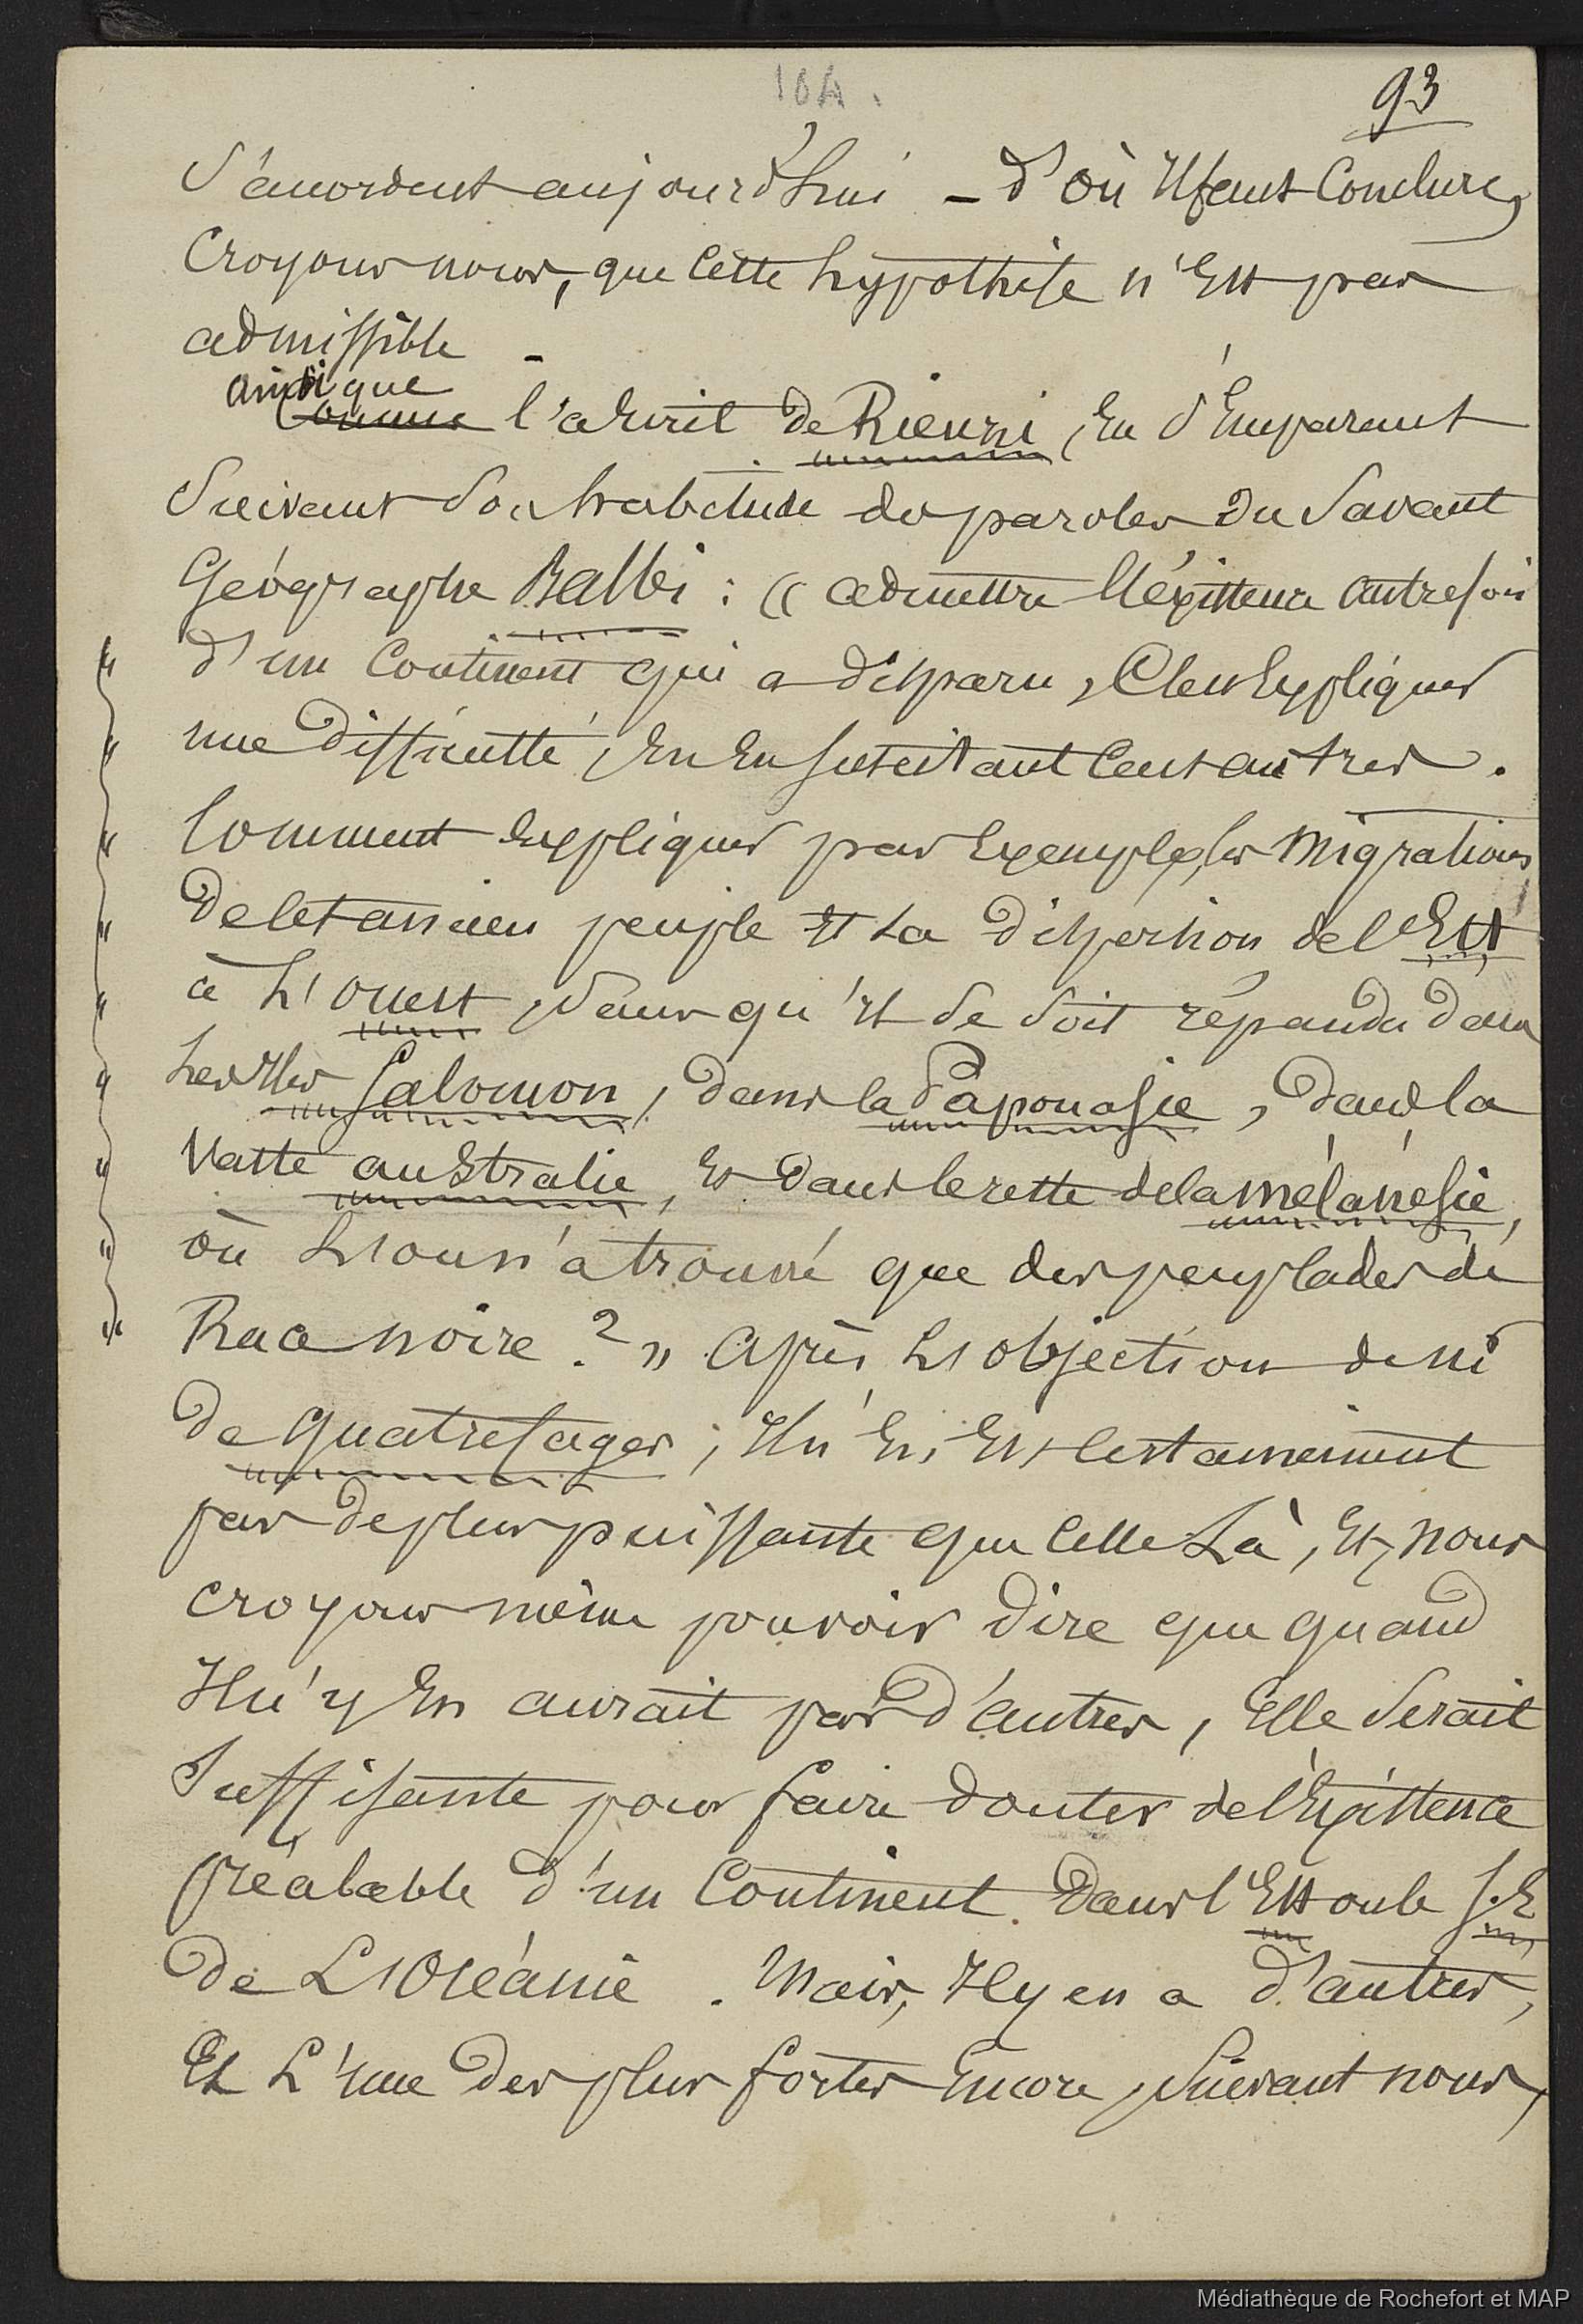 10A.
93
s'accordent aujourd'hui - d'où il faut conclure,
croyons nous, que cette hypothèse n'est pas
admissible -
ainsi que
Comme l'a écrit de Rienzi, en s'emparant
suivant son habitude des paroles du savant
Géographe Balbi : « admettre l'existence autrefois
d'un continent qui a disparu, c'est expliquer
une difficulté, en en suscitant cent autres.
Comment expliquer par exemple, les migrations
de cet ancien peuple et sa dispersion de l'Est
à l'ouest, sans qu'il se soit répandu dans
les Iles Salomon, dans la Papouasie, dans la
vaste australie, et dans le reste de la mélanésie,
où l'on n'a trouvé que des peuplades de
Race noire ? » Après l'objection de Mr
de Quatrefages, il n'en est certainement
pas de plus puissante que celle là, et, nous
croyons même pouvoir dire que quand
Il n'y en aurait pas d'autres, elle serait
suffisante pour faire douter de l'existence
préalable d'un continent dans l'Est ou le S.E
de l'Océanie. Mais, il y en a d'autres,
et l'une des plus fortes encore, suivant nous,
Médiathèque de Rochefort et MAP